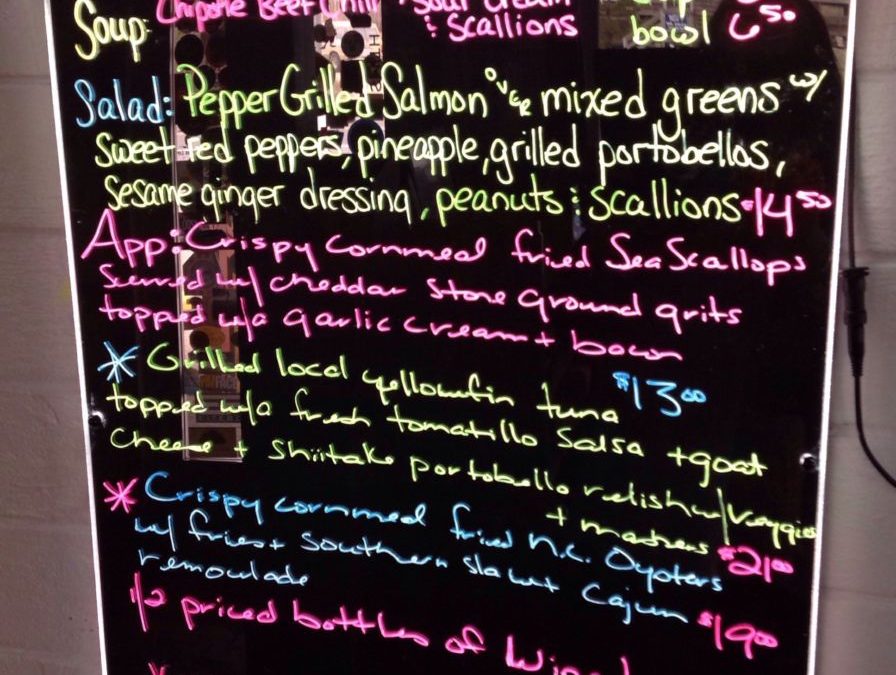 Soup: Chipotle Beef Chili Sour Cream
& Scallions bowl 6⁵⁰
Salad: Pepper Grilled Salmon over mixed greens w/
Sweet red peppers, pineapple, grilled portobellos,
Sesame ginger dressing, peanuts & Scallions $14⁵⁰
App: Crispy cornmeal fried Sea Scallops
Served w/ cheddar stone ground grits
topped w/a garlic cream + bacon
$13⁰⁰
* Grilled local yellowfin tuna
topped w/a fresh tomatillo salsa + goat
cheese + shiitake portobello relish w/ veggies
+ mashers $21⁰⁰
* Crispy cornmeal fried N.C. Oysters
w/ fries + southern slaw + Cajun
remoulade $19⁰⁰
1/2 priced bottles of Wine!